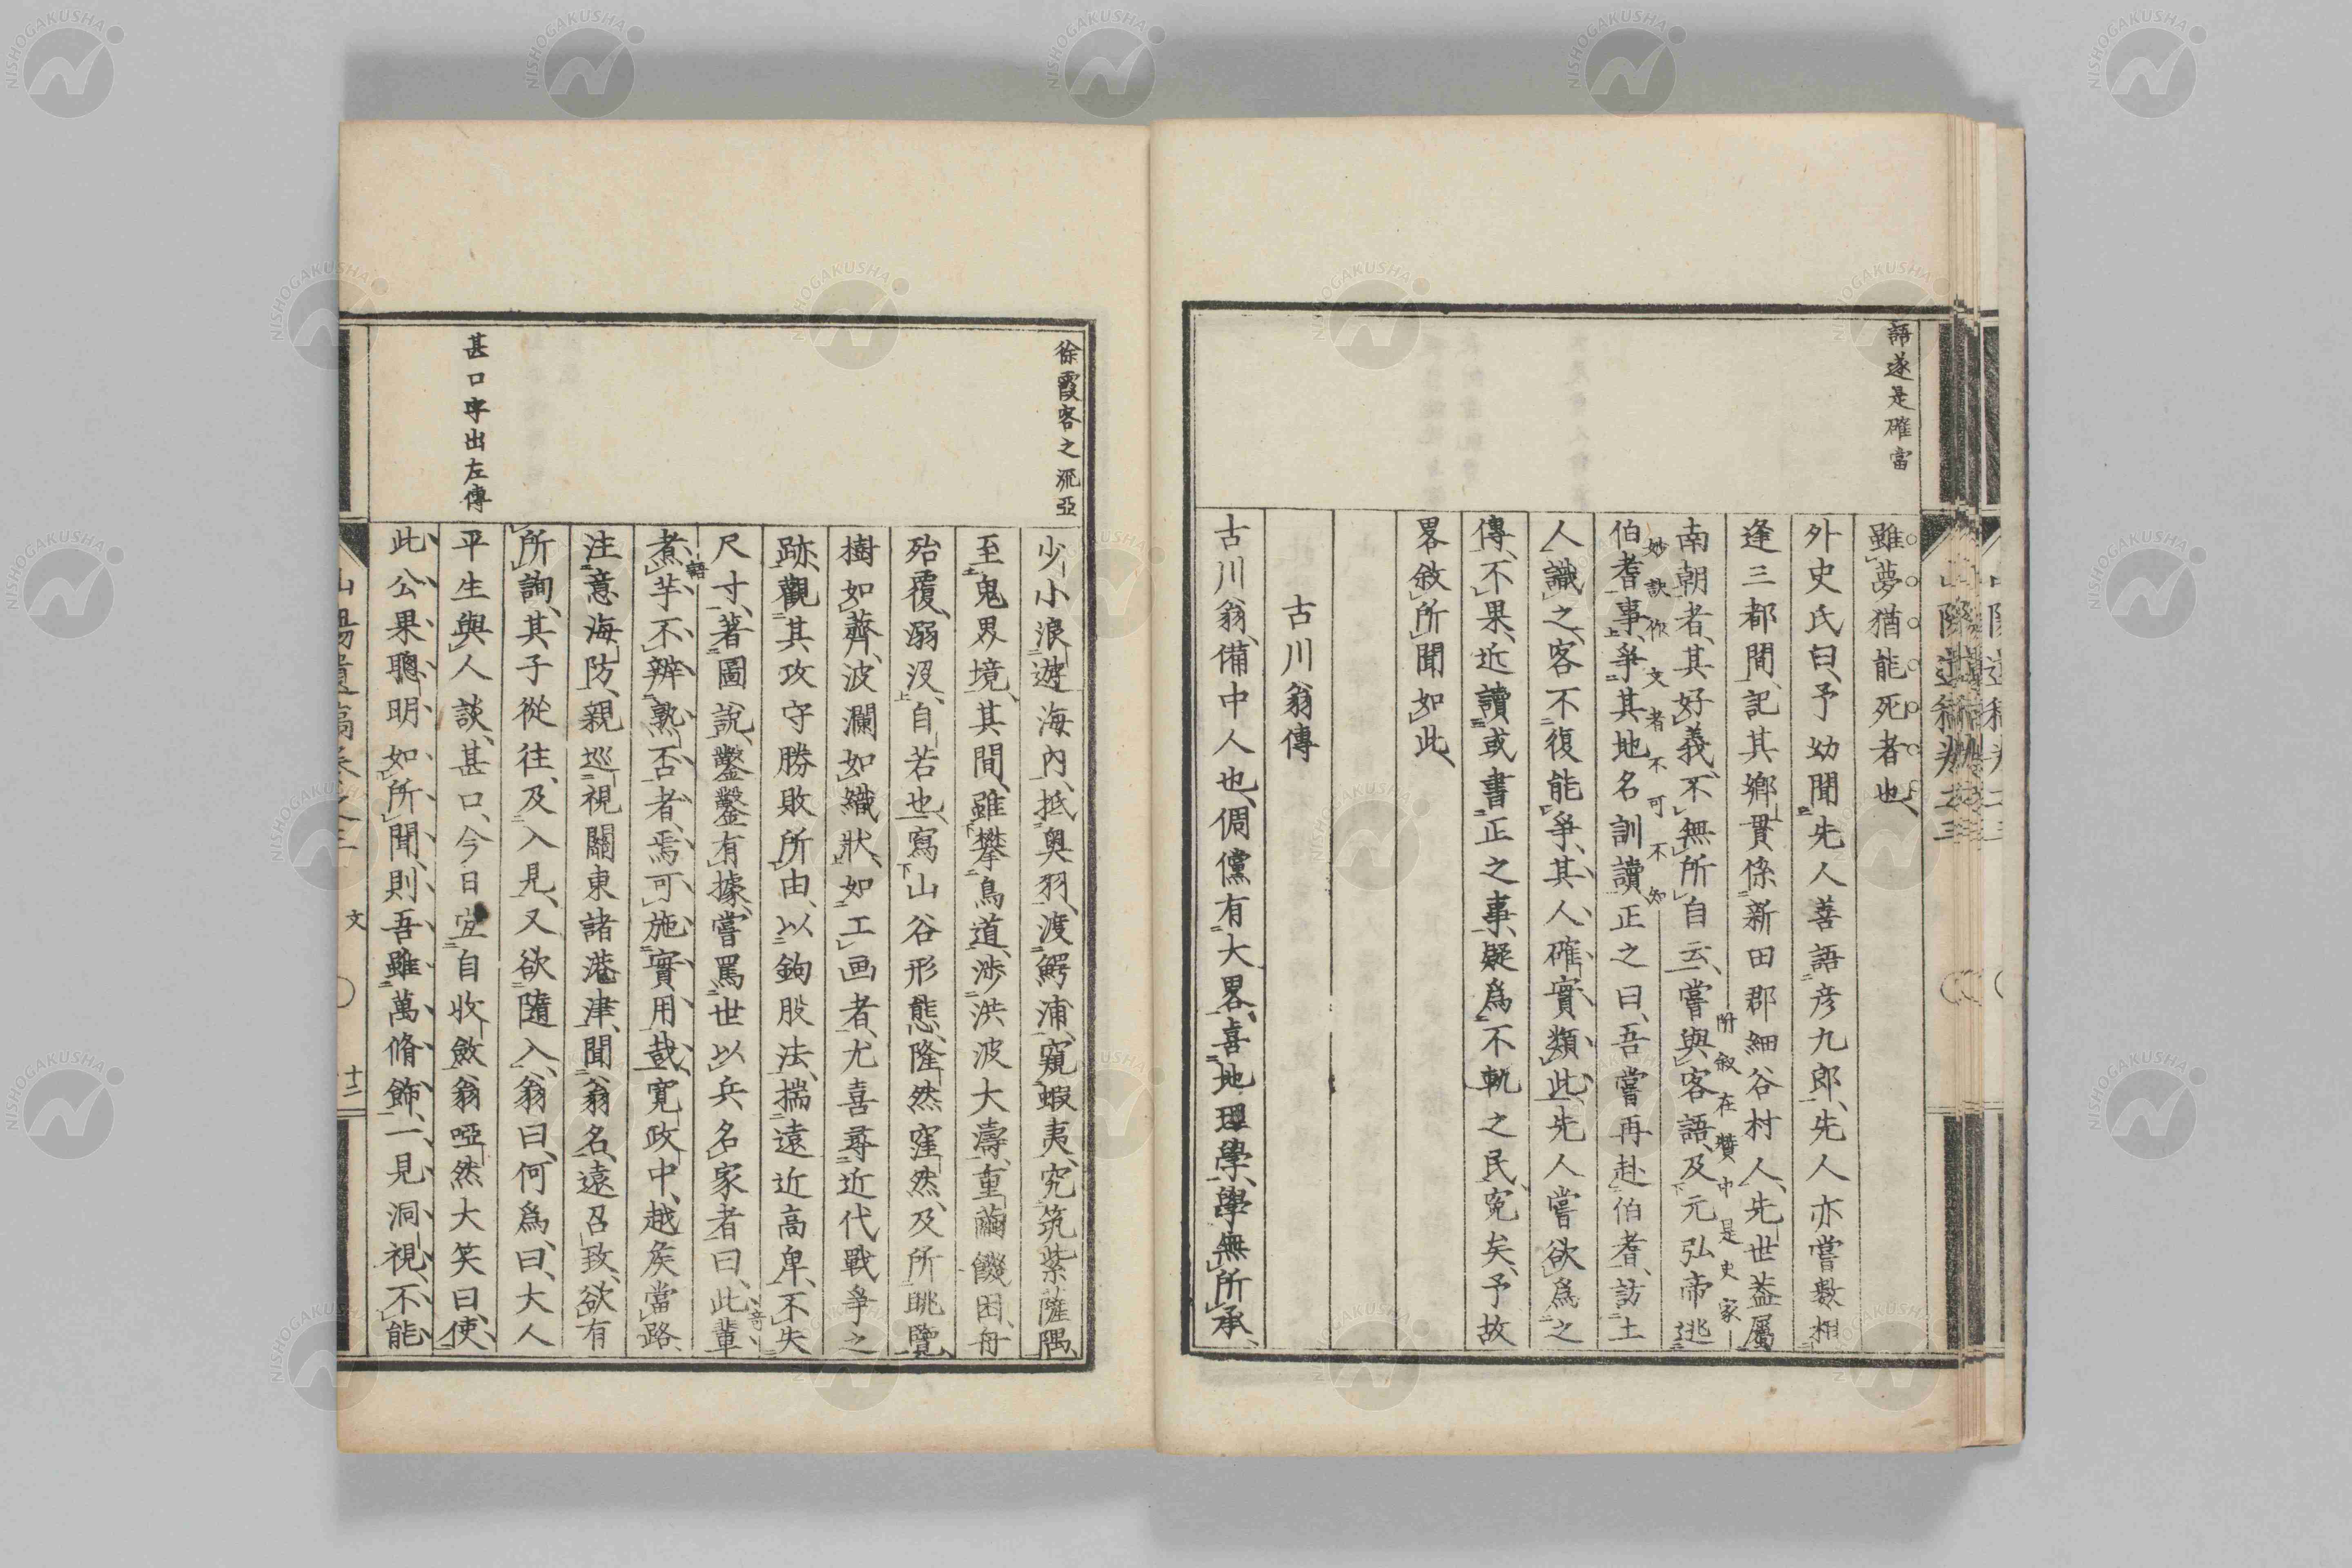 語遂是確當
雖夢猶能死者也、
外史氏曰、予幼聞先人善語彦九郎、先人亦嘗數相
逢三都間、記其鄉貫係新田郡細谷村人、先世葢屬
附敘在贊中是史家
南朝者、其好義、不無所自云、嘗與客語、及元弘帝逃
妙訣作文者不可不知
伯耆事、爭其地名訓讀正之曰、吾嘗再赴伯耆、訪土
人識之、客不復能爭、其人確實類此、先人嘗欲爲之
傳、不果、近讀或書正之事、疑爲不軌之民、寃矣、予故
畧敘所聞如此、
古川翁傳
古川翁、備中人也、倜儻有大畧、喜地理學、學無所承、
徐霞客之流亞
少小浪遊海内、抵奥羽、渡鰐浦、窺蝦夷、究筑紫薩隅、
至鬼界境、其間、雖攀鳥道、渉洪波大濤、重繭饑困、舟
殆覆、溺沒、自若也、寫山谷形態、隆然窪然、及所眺覽、
樹如薺、波瀾如織狀、如工画者、尤喜尋近代戰爭之
跡、觀其攻守勝敗所由、以鉤股法、揣遠近高卑、不失
奇
尺寸、著圖説、鑿鑿有據、嘗罵世以兵名家者曰、此輩
語
煮芋、不辨熟否者、焉可施實用哉、寛政中、越矦當路
注意海防、親巡視關東諸港津、聞翁名、遠召致、欲有
所詢、其子從往、及入見、又欲隨入、翁曰、何爲、曰、大人
甚口字出左傳
平生與人談、甚口、今日宜自收斂、翁啞然大笑曰、使
此公果聰明如所聞、則吾雖萬脩飾、一見洞視、不能
山陽遺稿卷之三
文
十二